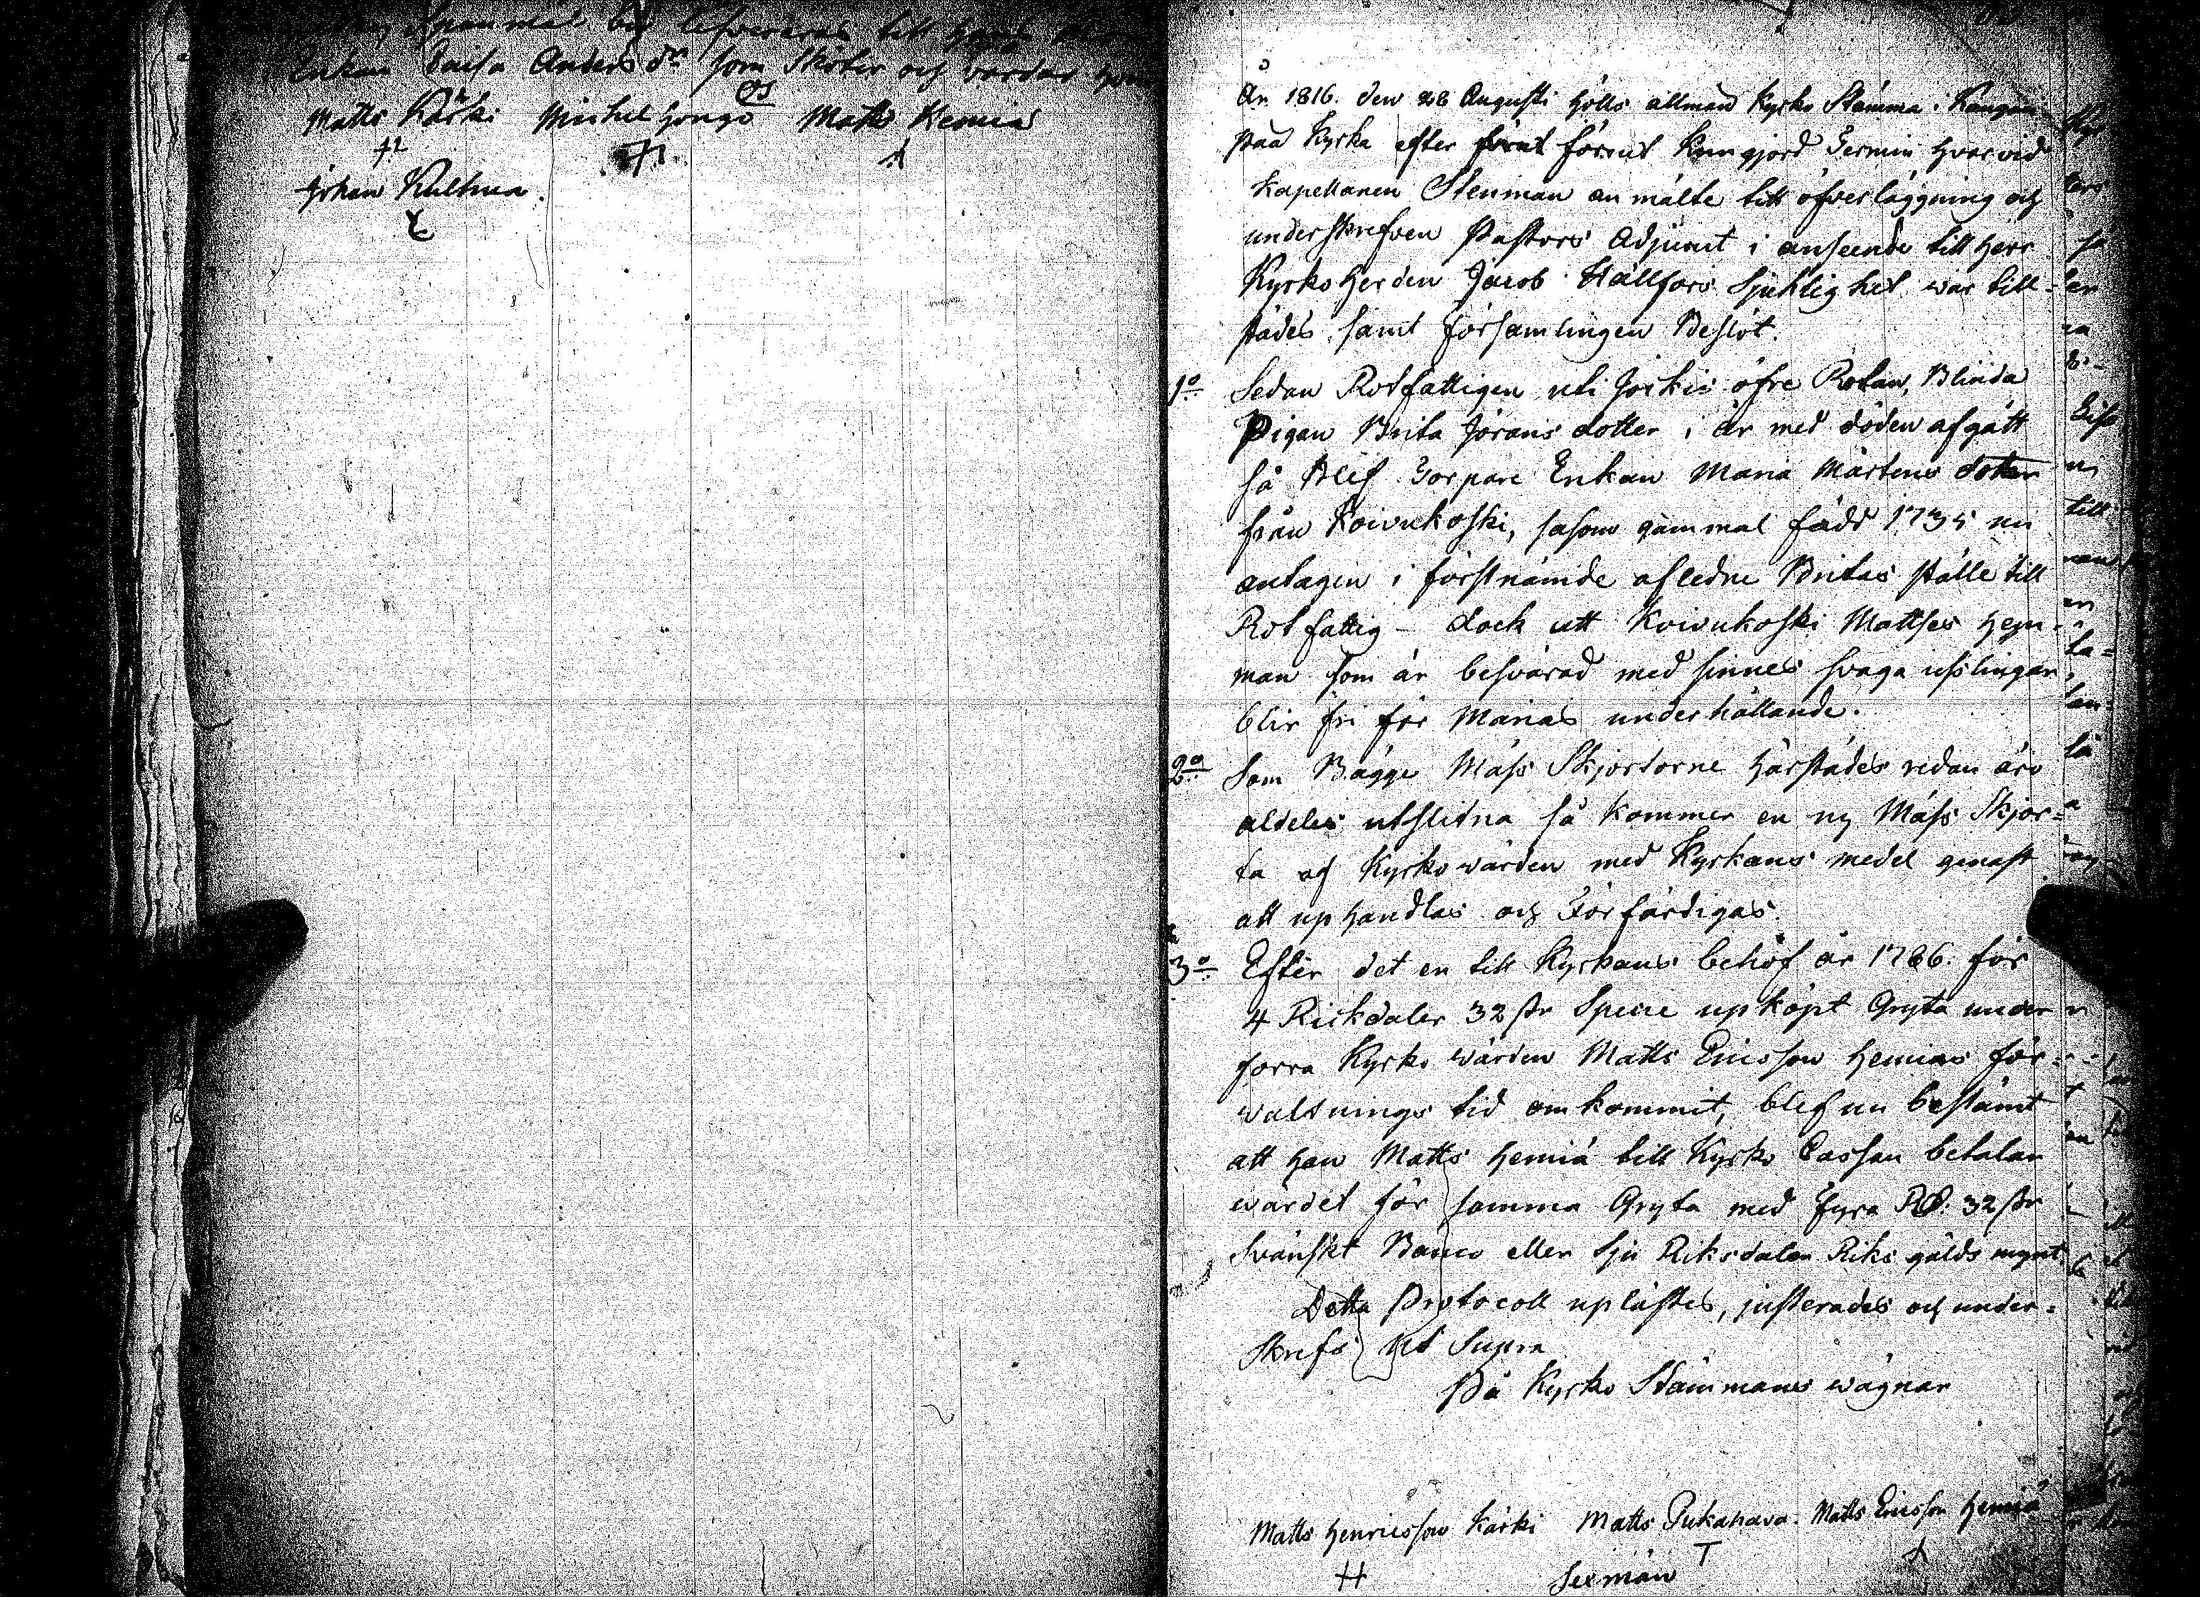 Spanmål bör lefvereras till
Enkan Caisa Anders dr som Sköter och vårdar
Matts Kärki Michel Jongo Matts Kemiä
Johan Kultma.
År 1816. den 28 Augusti hölls allmän Kyrko Stämma i Kangan
pää Kyrka efter förut Kungjord Termin hvarvid
Kapellanen Stenman anmälte till öfverläggning och
underskrefven Pastors Adjunct i anseende till herr
Kyrkoherden Jacob Hällfors Sjuklighet war till-
städes samt församlingen Beslöt.
1o Sedan Rotfattigen uti Jockis öfre Rotan, Blinda
Pigan Brita Jörans dotter i år med döden afgått
så Blef Torpare Enkan Maria Mårtens dotter
från Koivukoski, såsom gammal född 1735 nu
antagen i förstnämde afledne Britas ställe till
Rotfattig - dock att Koivukoski Mattses hem-
man som är besvärad med sinnes svaga uslingar,
blir fri för Marias underhållande.
2o Som Bägge Mäss Skjortorne härstädes redan äro
aldeles utslitna så kommer en ny Mäss Skjor-
ta af Kyrkowärden med Kyrkans medel genast
att uphandlas och Förfärdigas.
3o Efter det en till Kyrkans behof år 1786. för
4 Rickdaler 32 sk Specie upköpt Gryta under
forra Kyrko wärden Matts Ericsson hemiäs för-
waltnings tid omkommit, blef nu bestämt
att han Matts hemiä till Kyrko Cassan betalar
wärdet för samma Gryta med fyra RD: 32 sk
Svänskt Banco eller sju Riksdaler Riks gälds mynt.
Detta Protocoll uplästes, justerades och under-
skrefs ut Supra
På Kyrko Stämmans wägnar
Matts Henricsson Kärki Matts Pukahava. Matts Ericsson hemiä
Sexmän